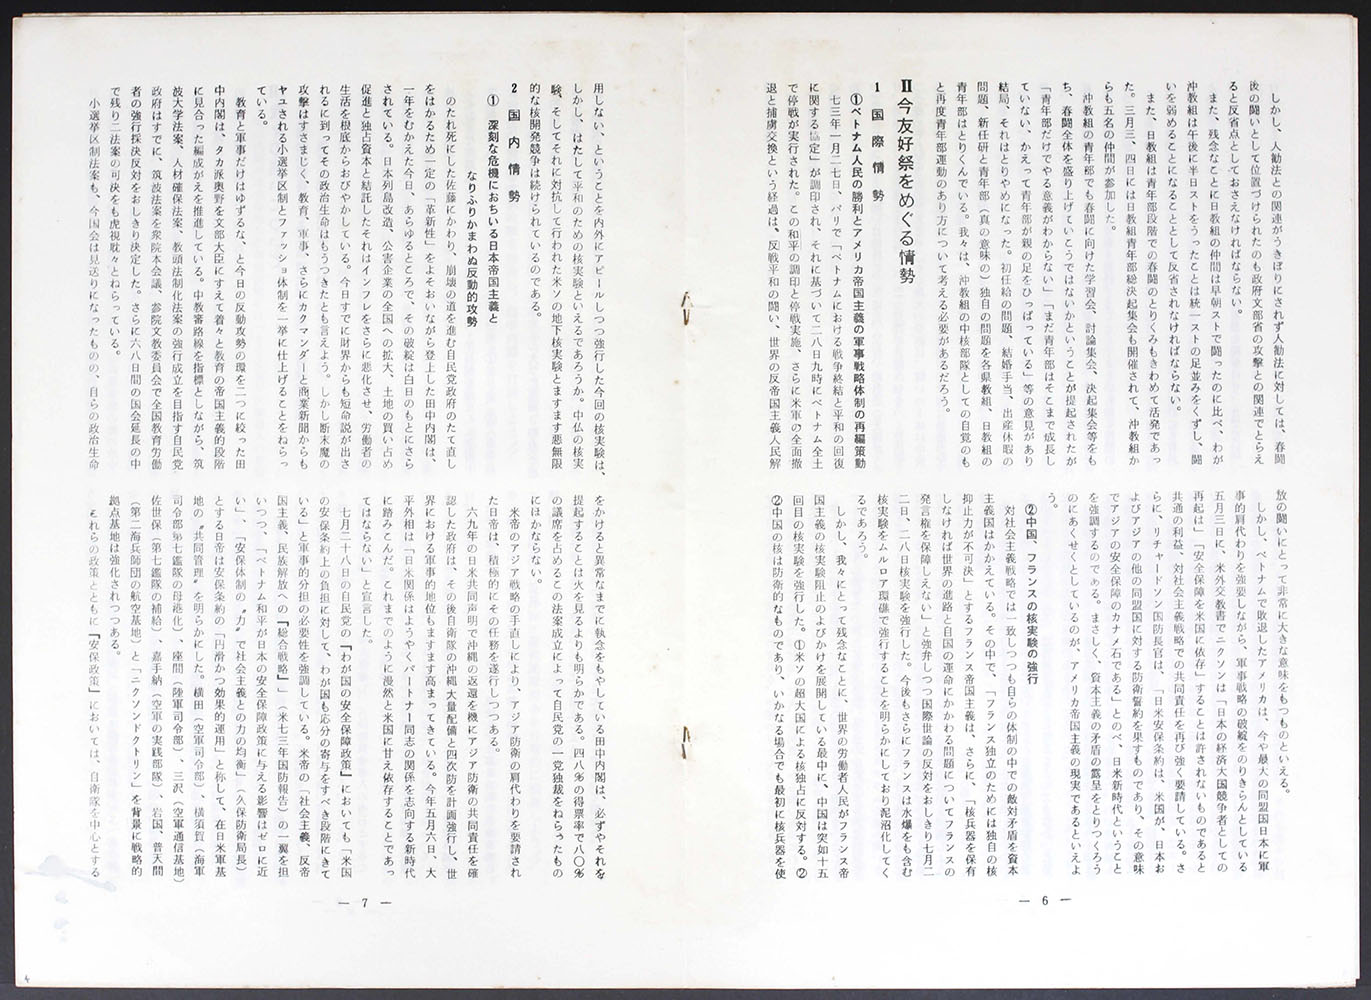 しかし、人勧法との関連がうきぼりにされず人勧法に対しては、春闘
後の闘いとして位置づけられたのも政府文部省の攻撃との関連でとらえ
ると反省点としておさえなければならない。
また、残念なことに日教組の仲間は早朝ストで闘ったのに比べ、わが
沖教組は午後に半日ストをうったことは統一ストの足並みをくずし、闘
いを弱めることになることとして反省されなければならない。
また、日教組は青年部段階での春闘のとりくみもきわめて活発であっ
た。三月三、四日には日教組青年部総決起集会も開催されて、沖教組か
らも五名の仲間が参加した。
沖教組の青年部でも春闘に向けた学習会、討論集会、決起集会等をも
ち、春闘全体を盛り上げていこうではないかということが提起されたが
「青年部だけでやる意義がわからない」「まだ青年部はそこまで成長し
ていない、かえって青年部が親の足をひっぱっている」等の意見があり
結局、それはとりやめになった。初任給の問題、結婚手当、出産休暇の
問題、新任研と青年部（真の意味の）独自の問題を各県教組、日教組の
青年部はとりくんでいる。我々は、沖教組の中核部隊としての自覚のも
と再度青年部運動のあり方について考える必要があるだろう。
Ⅱ今友好祭をめぐる情勢
1 国際情勢
①ベトナム人民の勝利とアメリカ帝国主義の軍事戦略体制の再編策動
七三年一月二七日、パリで「ベトナムにおける戦争終結と平和の回復
に関する協定」が調印され、それに基づいて二八日九時にベトナム全土
で停戦が実行された。この和平の調印と停戦実施、さらに米軍の全面撤
退と捕虜交換という経過は、反戦平和の闘い、世界の反帝国主義人民解
放の闘いにとって非常に大きな意味をもつものといえる。
しかし、ベトナムで敗退したアメリカは、今や最大の同盟国日本に軍
事的肩代わりを強要しながら、軍事戦略の破綻をのりきらんとしている
五月三日に、米外交教書でニクソンは「日本の経済大国競争者としての
再起は」「安全保障を米国に依存」することは許されないものであると
共通の利益、対社会主義戦略での共同責任を再び強く要請している。さ
らに、リチャードソン国防長官は、「日米安保条約は、米国が、日本お
よびアジアの他の同盟国に対する防衛誓約を果すものであり、その意味
でアジアの安全保障のカナメ石である」とのべ、日米新時代ということ
を強調するのである。まさしく、資本主義の矛盾の露呈をとりつくろう
のにあくせくとしているのが、アメリカ帝国主義の現実であるといえよ
う。
②中国、フランスの核実験の強行
対社会主義戦略では一致しつつも自らの体制の中での敵対矛盾を資本
主義国はかかえている。その中で、「フランス独立のためには独自の核
抑止力が不可決」とするフランス帝国主義は、さらに、「核兵器を保有
しなければ世界の進路と自国の運命にかかわる問題についてフランスの
発言権を保障しえない」と強弁しつつ国際世論の反対をおしきり七月二
二日、二八日核実験を強行した。今後もさらにフランスは水爆をも含む
核実験をムルロア環礁で強行することを明らかにしており泥沼化してく
るであろう。
しかし、我々にとって残念なことに、世界の労働者人民がフランス帝
国主義の核実験阻止のよびかけを展開している最中に、中国は突如十五
回目の核実験を強行した。①米ソの超大国による核独占に反対する。②
②中国の核は防衛的なものであり、いかなる場合でも最初に核兵器を使
— 6 —
用しない、ということを内外にアピールしつつ強行した今回の核実験は、
しかし、はたして平和のための核実験といえるであろうか。中仏の核実
験、そしてそれに対抗して行われた米ソの地下核実験とますます悪無限
的な核開発競争は続けられているのである。
2 国内情勢
① 深刻な危機におちいる日本帝国主義と
なりふりかまわぬ反動的攻勢
のたれ死にした佐藤にかわり、崩壊の道を進む自民党政府のたて直し
をはかるため一定の「革新性」をよそおいながら登上した田中内閣は、
一年をむかえた今日、あらゆるところで、その破綻は白日のもとにさら
されている。日本列島改造、公害企業の全国への拡大、土地の買い占め
促進と独占資本と結託したそれはインフレをさらに悪化させ、労働者の
生活を根底からおびやかしている。今日すでに財界からも短命説が出さ
れるに到ってその政治生命はもうつきたとも言えよう。しかし断末魔の
攻撃はすさまじく、教育、軍事、さらにカクマンダーと商業新聞からも
ヤユされる小選挙区制とファッショ体制を一挙に仕上げることをねらっ
ている。
教育と軍事だけはゆずるな、と今日の反動攻勢の環を二つに絞った田
中内閣は、タカ派奥野を文部大臣にすえて着々と教育の帝国主義的段階
に見合った編成がえを推進している。中教審路線を指標としながら、筑
波大学法案、人材確保法案、教頭法制化法案の強行成立を目指す自民党
政府はすでに、筑波法案を衆院本会議、参院文教委員会で全国教育労働
者の強行採決反対をおしきり決定した。さらに六八日間の国会延長の中
で残り二法案の可決をも虎視耽々とねらっている。
小選挙区制法案も、今国会は見送りになったものの、自らの政治生命
をかけると異常なまでに執念をもやしている田中内閣は、必ずやそれを
提起することは火を見るよりも明らかである。四八％の得票率で八〇％
の議席を占めるこの法案成立によって自民党の一党独裁をねらったもの
にほかならない。
米帝のアジア戦略の手直しにより、アジア防衛の肩代わりを要請され
た日帝は、積極的にその任務を遂行しつつある。
六九年の日米共同声明で沖縄の返還を機にアジア防衛の共同責任を確
認した政府は、その後自衛隊の沖縄大量配備と四次防を計画強行し、世
界における軍事的地位もますます高まってきている。今年五月六日、大
平外相は「日米関係はようやくパートナー同志の関係を志向する新時代
に踏みこんだ。これまでのように漫然と米国に甘え依存することであっ
てはならない」と宣言した。
七月二十八日の自民党の『わが国の安全保障政策』においても「米国
の安保条約上の負担に対して、わが国も応分の寄与をすべき段階にきて
いる」と軍事的分担の必要性を強調している。米帝の「社会主義、反帝
国主義、民族解放への『総合戦略』」（米七三年国防報告）の一翼を担
いつつ、「ベトナム和平が日本の安全保障政策に与える影響はゼロに近
い」、「安保体制の〝力〟で社会主義との力の均衡」（久保防衛局長）
とする日帝は安保条約の「円滑かつ効果的運用」と称して、在日米軍基
地の〝共同管理〟を明らかにした。横田（空軍司令部）、横須賀（海軍
司令部第七艦隊の母港化）、座間（陸軍司令部）、三沢（空軍通信基地）
佐世保（第七鑑隊の補給）、嘉手納（空軍の実践部隊）、岩国、普天間
（第二海兵師団の航空基地）と「ニクソンドクトリン」を背景に戦略的
拠点基地は強化されつつある。
これらの政策とともに『安保政策』においては、自衛隊を中心とする
— 7 —
4